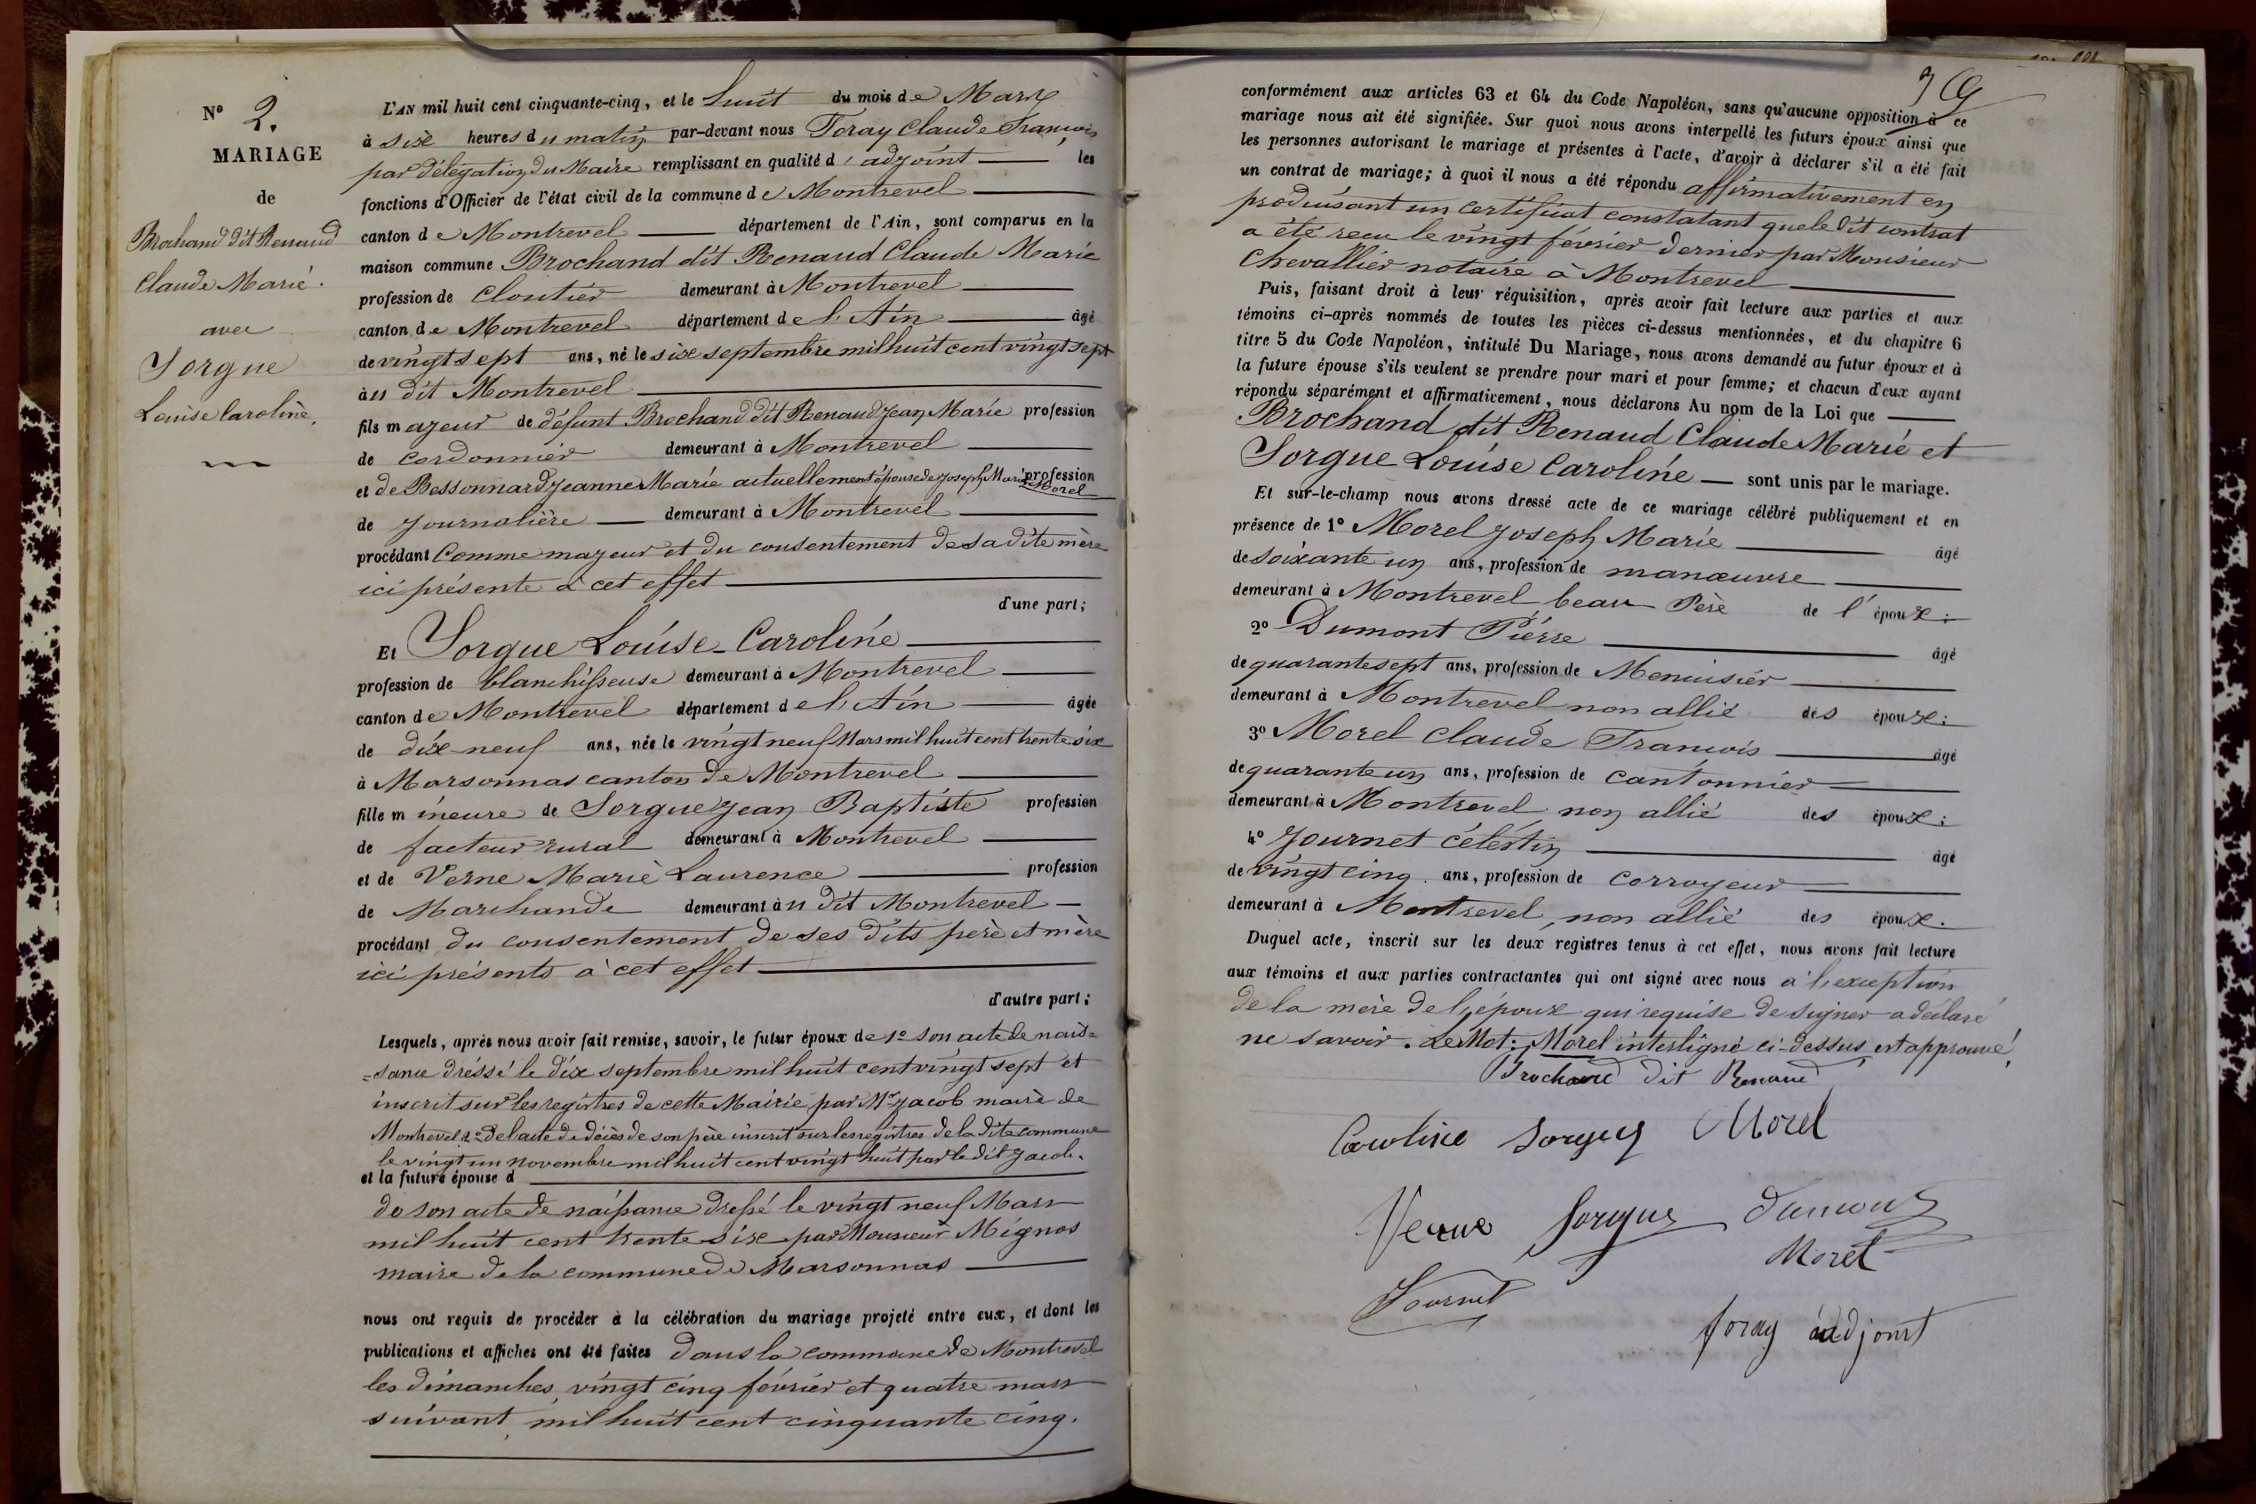 N° 2.
MARIAGE
de
Brochand dit Renaud
Claude Marie.
avec
Sorgue
Louise Caroline.
L'AN mil huit cent cinquante-cinq, et le huit du mois de Mars
à six heures du matin par-devant nous Foray Claude François
par délégation du Maire remplissant en qualité d'adjoint les
fonctions d'Officier de l'état civil de la commune de Montrevel
canton de Montrevel département de l'Ain, sont comparus en la
maison commune Brochand dit Renaud Claude Marie
profession de cloutier demeurant à Montrevel
canton de Montrevel département de l'Ain âgé
de vingt sept ans, né le six septembre mil huit cent vingt sept
à u dit Montrevel
fils majeur de défunt Brochand dit Renaud Jean Marie profession
de cordonnier demeurant à Montrevel
et de Bessonnard Jeanne Marie actuellement épouse de Joseph Marie Morel profession
de journalière demeurant à Montrevel
procédant comme majeur et du consentement de sa dite mère
ici présente à cet effet
d'une part;
Et Sorgue Louise Caroline
profession de blanchisseuse demeurant à Montrevel
canton de Montrevel département de l'Ain âgée
de dix-neuf ans, née le vingt neuf Mars mil huit cent trente six
à Marsonnas canton de Montrevel
fille mineure de Sorgue Jean Baptiste profession
de facteur rural demeurant à Montrevel
et de Verne Marie Laurence profession
de Marchande demeurant à u dit Montrevel
procédant du consentement de ses dits père et mère
ici présents à cet effet
d'autre part;
Lesquels, après nous avoir fait remise, savoir, le futur époux de 1° son acte de nais=
=sance dréssé le dix septembre mil huit cent vingt sept et
inscrit sur les registres de cette Mairie par Mr Jacob maire de
Montrevel 2° de l'acte de décès de son père inscrit sur les registres de la dite commune
le vingt un novembre mil huit cent vingt huit par le dit Jacob.
et la future épouse d
de son acte de naissance dressé le vingt neuf Mars
mil huit cent trente six par Monsieur Mignos
maire de la commune de Marsonnas
nous ont requis de procéder à la célébration du mariage projeté entre eux, et dont les
publications et affiches ont été faites dans la commune de Montrevel
les dimanches vingt cinq février et quatre mars
suivant, mil huit cent cinquante cinq.
conformément aux articles 63 et 64 du Code Napoléon, sans qu'aucune opposition à ce
mariage nous ait été signifiée. Sur quoi nous avons interpellé les futurs époux ainsi que
les personnes autorisant le mariage et présentes à l'acte, d'avoir à déclarer s'il a été fait
un contrat de mariage; à quoi il nous a été répondu affirmativement en
produisant un certificat constatant que le dit contrat
a été reçu le vingt février dernier par Monsieur
Chevallier notaire à Montrevel
Puis, faisant droit à leur réquisition, après avoir fait lecture aux parties et aux
témoins ci-après nommés de toutes les pièces ci-dessus mentionnées, et du chapitre 6
titre 5 du Code Napoléon, intitulé Du Mariage, nous avons demandé au futur époux et à
la future épouse s'ils veulent se prendre pour mari et pour femme; et chacun d'eux ayant
répondu séparément et affirmativement, nous déclarons Au nom de la Loi que
Brochand dit Renaud Claude Marie et
Sorgue Louise Caroline sont unis par le mariage.
Et sur-le-champ nous avons dressé acte de ce mariage célébré publiquement et en
présence de 1° Morel Joseph Marie âgé
de soixante un ans, profession de manœuvre
demeurant à Montrevel beau Père de l'époux;
2° Dumont Pierre âgé
de quarante sept ans, profession de Menuisier
demeurant à Montrevel non allié des époux;
3° Morel Claude François âgé
de quarante un ans, profession de cantonnier
demeurant à Montrevel non allié des époux;
4° Journet Célestin âgé
de vingt cinq ans, profession de corroyeur
demeurant à Montrevel non allié des époux.
Duquel acte, inscrit sur les deux registres tenus à cet effet, nous avons fait lecture
aux témoins et aux parties contractantes qui ont signé avec nous à l'exception
de la mère de l'époux qui requise de signer a déclaré
ne savoir. Le Mot: Morel interligné ci-dessus est approuvé.
Brochand dit Renaud
Caroline Sorgue Morel
Verne Sorgue Dumont
Morel
Journet
foray adjoint